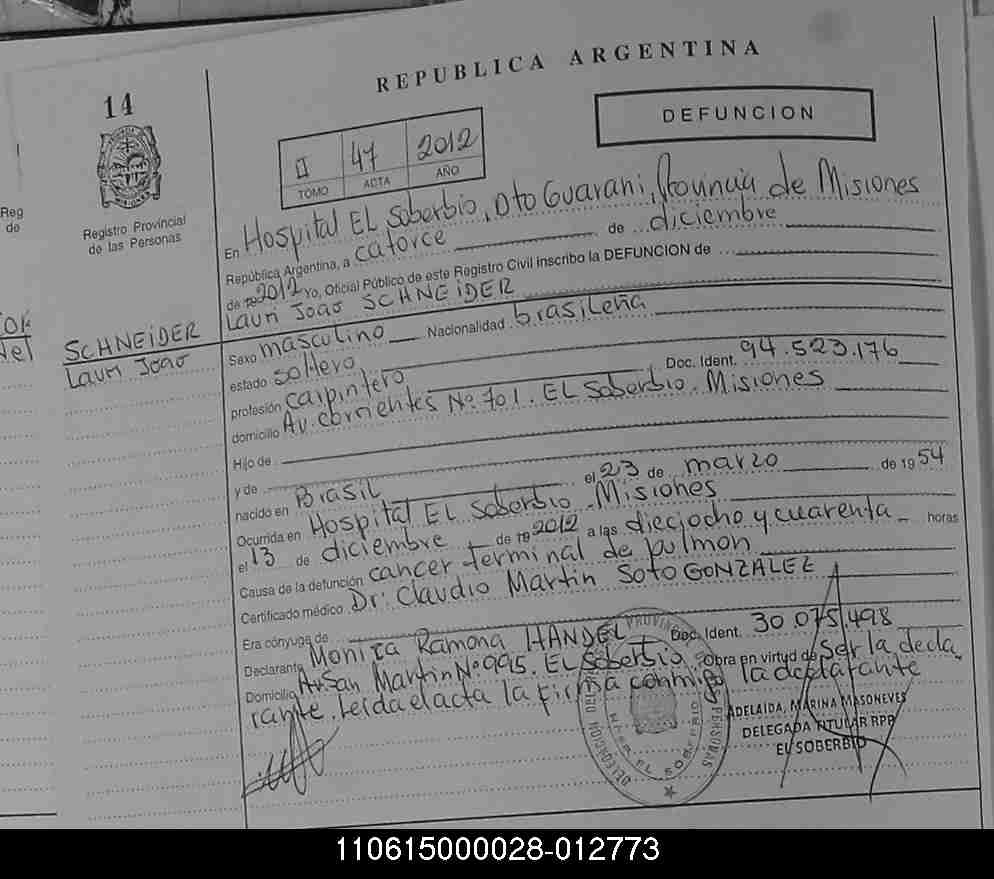 REPUBLICA ARGENTINA
14
DEFUNCION
II 47 2012
TOMO ACTA AÑO
Registro Provincial
de las Personas
Reg
de
En Hospital EL Soberbio, Dto Guarani, Provincia de Misiones
República Argentina, a catorce de diciembre
de 2012 Yo, Oficial Público de este Registro Civil inscribo la DEFUNCION de
Lauri Joao SCHNEIDER
SCHNEIDER
Lauri Joao
Sexo masculino Nacionalidad brasileña
estado soltero Doc. Ident. 94.523.176
profesión carpintero
domicilio Av. Corrientes Nº 701. EL Soberbio. Misiones
Hijo de
y de el 23 de marzo de 1954
nacido en Brasil
Ocurrida en Hospital EL Soberbio - Misiones
el 13 de diciembre de 2012 a las dieciocho y cuarenta horas
Causa de la defunción cancer terminal de pulmon
Certificado médico Dr. Claudio Martin SOTO GONZALEZ
Era cónyuge de
Declarante Monica Ramona HANDEL Doc. Ident. 30.075.498
Domicilio Av San Martin Nº 995. EL Soberbio. Obra en virtud de ser la decla
rante. Leida el acta la firma conmigo la declarante
ADELAIDA, MARINA MASONEVES
DELEGADA TITULAR RPP
EL SOBERBIO
110615000028-012773